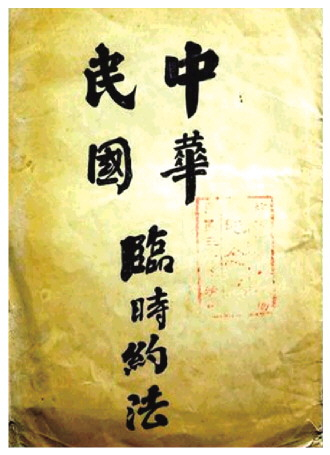 中華
民國
臨時約法